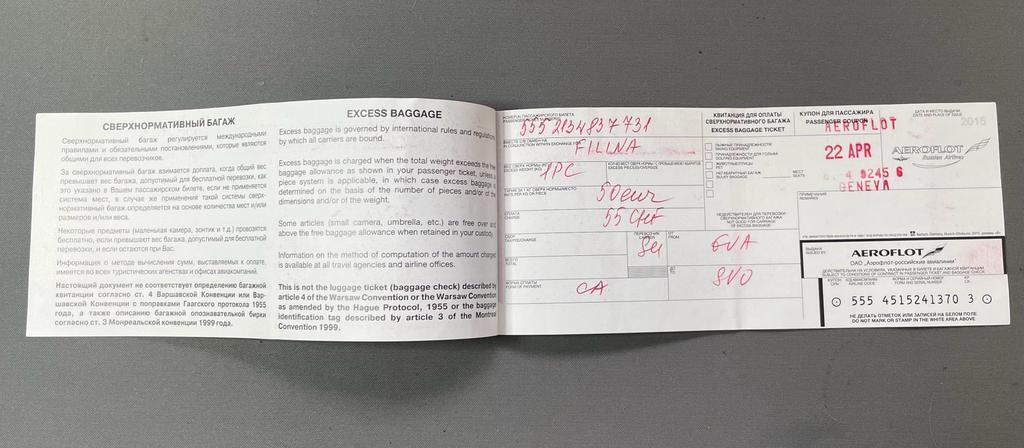 СВЕРХНОРМАТИВНЫЙ БАГАЖ
Сверхнормативный багаж регулируется международными
правилами и обязательными постановлениями, которые являются
общими для всех перевозчиков.
За сверхнормативный багаж взимается доплата, когда общий вес
превышает вес багажа, допустимый для бесплатной перевозки, как
это указано в Вашем пассажирском билете, если не применяется
система мест, в случае же применения такой системы сверх-
нормативный багаж определяется на основе количества мест и/или
размеров и/или веса.
Некоторые предметы (маленькая камера, зонтик и т.д.) провозятся
бесплатно, если превышают вес багажа, допустимый для бесплатной
перевозки, и если остаются при Вас.
Информация о методе вычисления сумм, выставляемых к оплате,
имеется во всех туристических агентствах и офисах авиакомпаний.
Настоящий документ не соответствует определению багажной
квитанции согласно ст. 4 Варшавской Конвенции или Вар-
шавской Конвенции с поправками Гаагского протокола 1955
года, а также описанию багажной опознавательной бирки
согласно ст. 3 Монреальской конвенции 1999 года.
EXCESS BAGGAGE
Excess baggage is governed by international rules and regulations
by which all carriers are bound.
Excess baggage is charged when the total weight exceeds the free
baggage allowance as shown in your passenger ticket, unless a
piece system is applicable, in which case excess baggage is
determined on the basis of the number of pieces and/or the
dimensions and/or of the weight.
Some articles (small camera, umbrella, etc.) are free over and
above the free baggage allowance when retained in your custody.
Information on the method of computation of the amount charged
is available at all travel agencies and airline offices.
This is not the luggage ticket (baggage check) described by
article 4 of the Warsaw Convention or the Warsaw Convention
as amended by the Hague Protocol, 1955 or the baggage
identification tag described by article 3 of the Montreal
Convention 1999.
555 2134837731
FILLNA
1PC
50eur
55 CHF
SU
GVA
SVO
CA
КВИТАНЦИЯ ДЛЯ ОПЛАТЫ
СВЕРХНОРМАТИВНОГО БАГАЖА
EXCESS BAGGAGE TICKET
КУПОН ДЛЯ ПАССАЖИРА
PASSENGER COUPON
AEROFLOT
22 APR
GENEVA
ДАТА И МЕСТО ВЫДАЧИ
DATE AND PLACE OF ISSUE
2015
AEROFLOT
Russian Airlines
ВЫДАНА
ISSUED BY
AEROFLOT
ОАО „Аэрофлот-российские авиалинии“
SUBJECT TO CONDITIONS OF CONTRACT IN PASSENGER TICKET AND BAGGAGE CHECK
555 4515241370 3
НЕ ДЕЛАТЬ ОТМЕТОК ИЛИ ЗАПИСЕЙ НА БЕЛОМ ПОЛЕ
DO NOT MARK OR STAMP IN THE WHITE AREA ABOVE